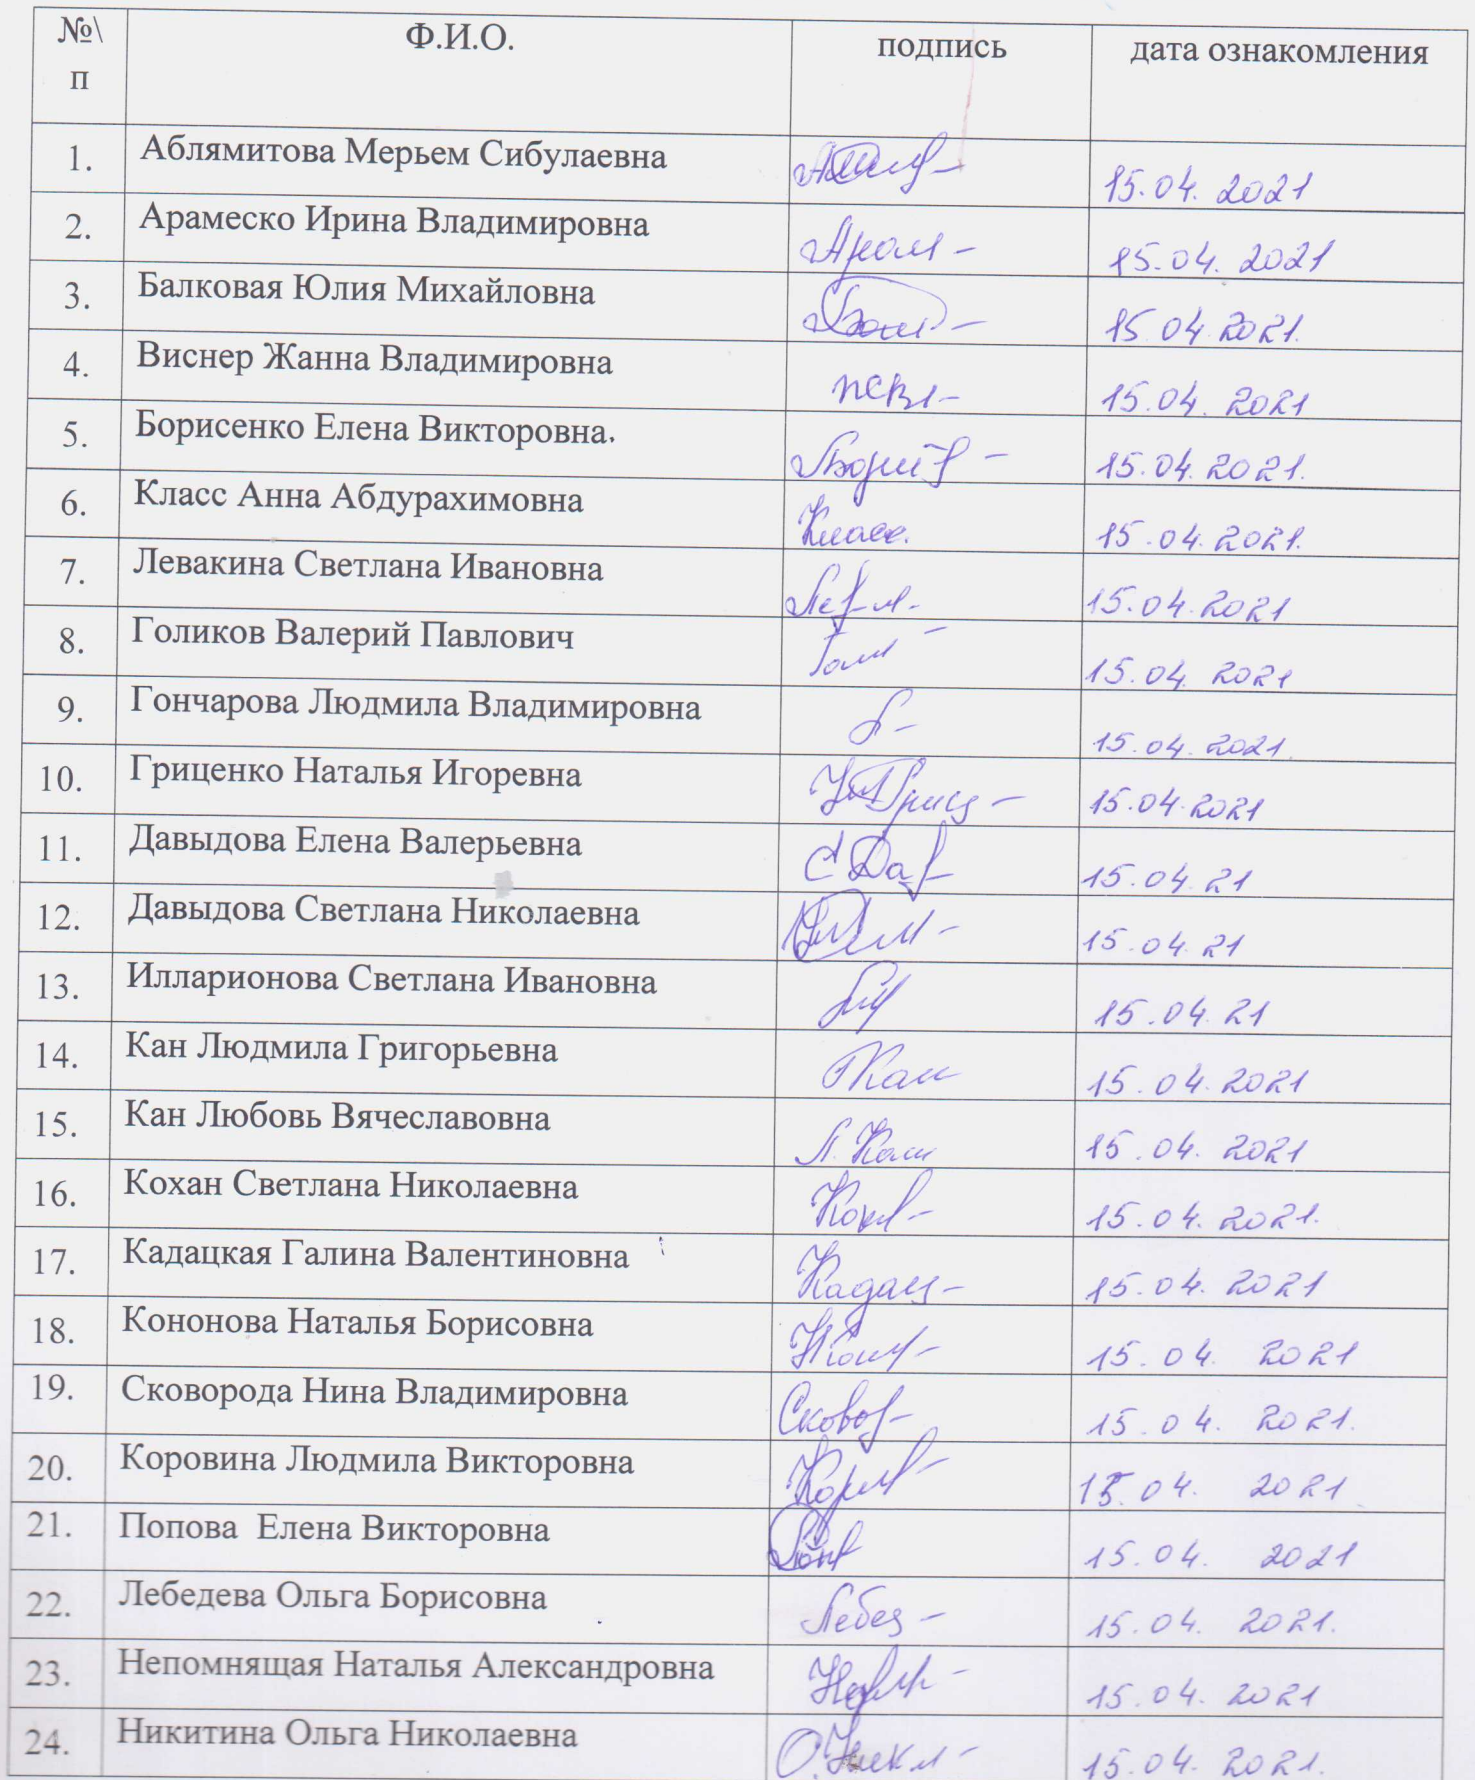 №\ Ф.И.О. подпись дата ознакомления
п
1. Аблямитова Мерьем Сибулаевна 15.04.2021
2. Арамеско Ирина Владимировна 15.04.2021
3. Балковая Юлия Михайловна 15.04.2021.
4. Виснер Жанна Владимировна 15.04.2021
5. Борисенко Елена Викторовна. 15.04.2021.
6. Класс Анна Абдурахимовна Класс. 15.04.2021.
7. Левакина Светлана Ивановна 15.04.2021
8. Голиков Валерий Павлович 15.04.2021
9. Гончарова Людмила Владимировна 15.04.2021.
10. Гриценко Наталья Игоревна 15.04.2021
11. Давыдова Елена Валерьевна 15.04.21
12. Давыдова Светлана Николаевна 15.04.21
13. Илларионова Светлана Ивановна 15.04.21
14. Кан Людмила Григорьевна 15.04.2021
15. Кан Любовь Вячеславовна Л. Кан 15.04.2021
16. Кохан Светлана Николаевна 15.04.2021.
17. Кадацкая Галина Валентиновна Кадац- 15.04.2021
18. Кононова Наталья Борисовна 15.04.2021
19. Сковорода Нина Владимировна 15.04.2021.
20. Коровина Людмила Викторовна 15.04.2021
21. Попова Елена Викторовна 15.04.2021
22. Лебедева Ольга Борисовна Лебед- 15.04.2021.
23. Непомнящая Наталья Александровна 15.04.2021
24. Никитина Ольга Николаевна 15.04.2021.